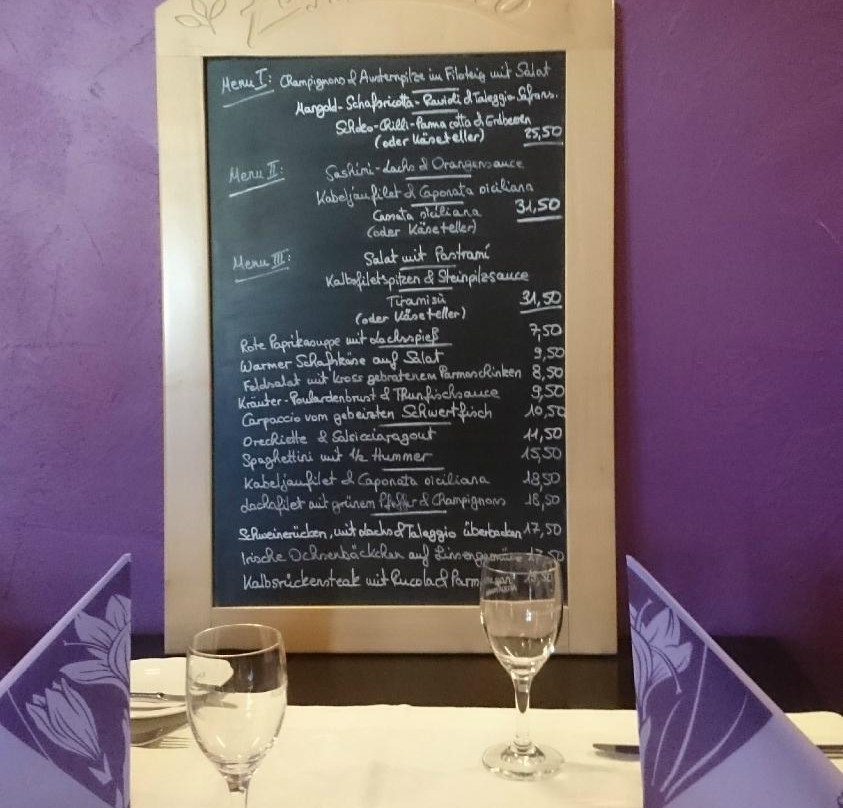 Menu I: Champignons & Austernpilze im Filoteig mit Salat
Mangold-Schafsricotta-Ravioli & Taleggio-Safrans.
Schoko-Chilli-Panna cotta & Erdbeeren
(oder Käseteller) 25,50
Menu II: Sashimi-Lachs & Orangensauce
Kabeljaufilet & Caponata siciliana
Cassata siciliana 31,50
(oder Käseteller)
Menu III: Salat mit Pastrami
Kalbsfiletspitzen & Steinpilzsauce
Tiramisù 31,50
(oder Käseteller)
Rote Paprikasuppe mit Lachsspieß 7,50
Warmer Schafskäse auf Salat 9,50
Feldsalat mit kross gebratenem Parmaschinken 8,50
Kräuter-Poulardenbrust & Thunfischsauce 9,50
Carpaccio vom gebeizten Schwertfisch 10,50
Orechiette & Salsicciaragout 11,50
Spaghettini mit 1/2 Hummer 15,50
Kabeljaufilet & Caponata siciliana 18,50
Lachsfilet mit grünem Pfeffer & Champignons 18,50
Schweinerücken, mit Lachs & Taleggio überbacken 17,50
Irische Ochsenbäckchen auf Linsengemüse 17,50
Kalbsrückensteak mit Rucola & Parmesan